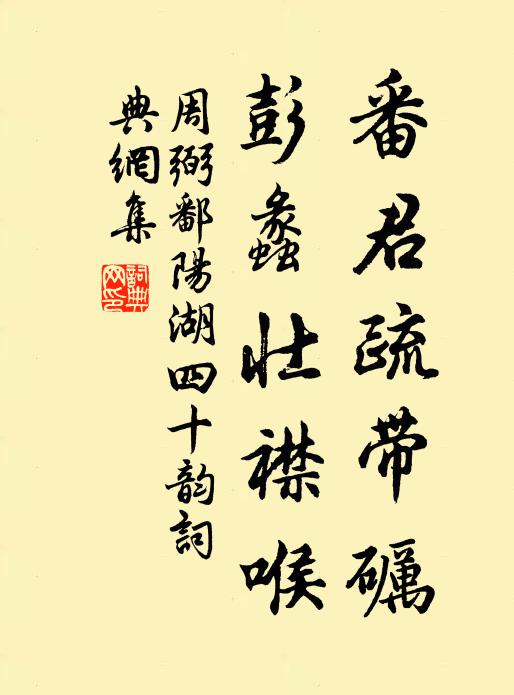 番君疏带礪
彭蠡壮襟喉
周弼鄱陽湖四十韵詞
典網集
詞典網印